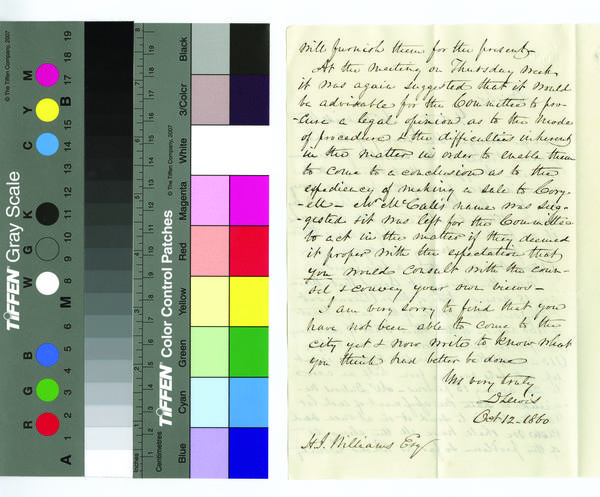 will furnish them for the present
At the meeting on Thursday week
it was again suggested that it would
be advisable for the Committee to pro-
cure a legal opinion as to the mode
of procedure & the difficulties inherent
in the matter in order to enable them
to come to a conclusion as to the
expediency of making a sale to Cory-
ell - Mr McCall's name was sug-
gested & it was left for the Committee
to act in the matter if they deemed
it proper with the expectation that
you would consult with the coun-
sel & convey your own views -
I am very sorry to find that you
have not been able to come to the
city yet & now write to know what
you think had better be done
Yrs very truly
D Lewis
Oct 12. 1860
H. J. Williams Esq
© The Tiffen Company, 2007
TIFFEN Gray Scale
R G B W G K C Y M
A 1 2 3 4 5 6 M 8 9 10 11 12 13 14 15 B 17 18 19
TIFFEN Color Control Patches
© The Tiffen Company, 2007
Inches
Centimetres
Blue
Cyan
Green
Yellow
Red
Magenta
White
3/Color
Black